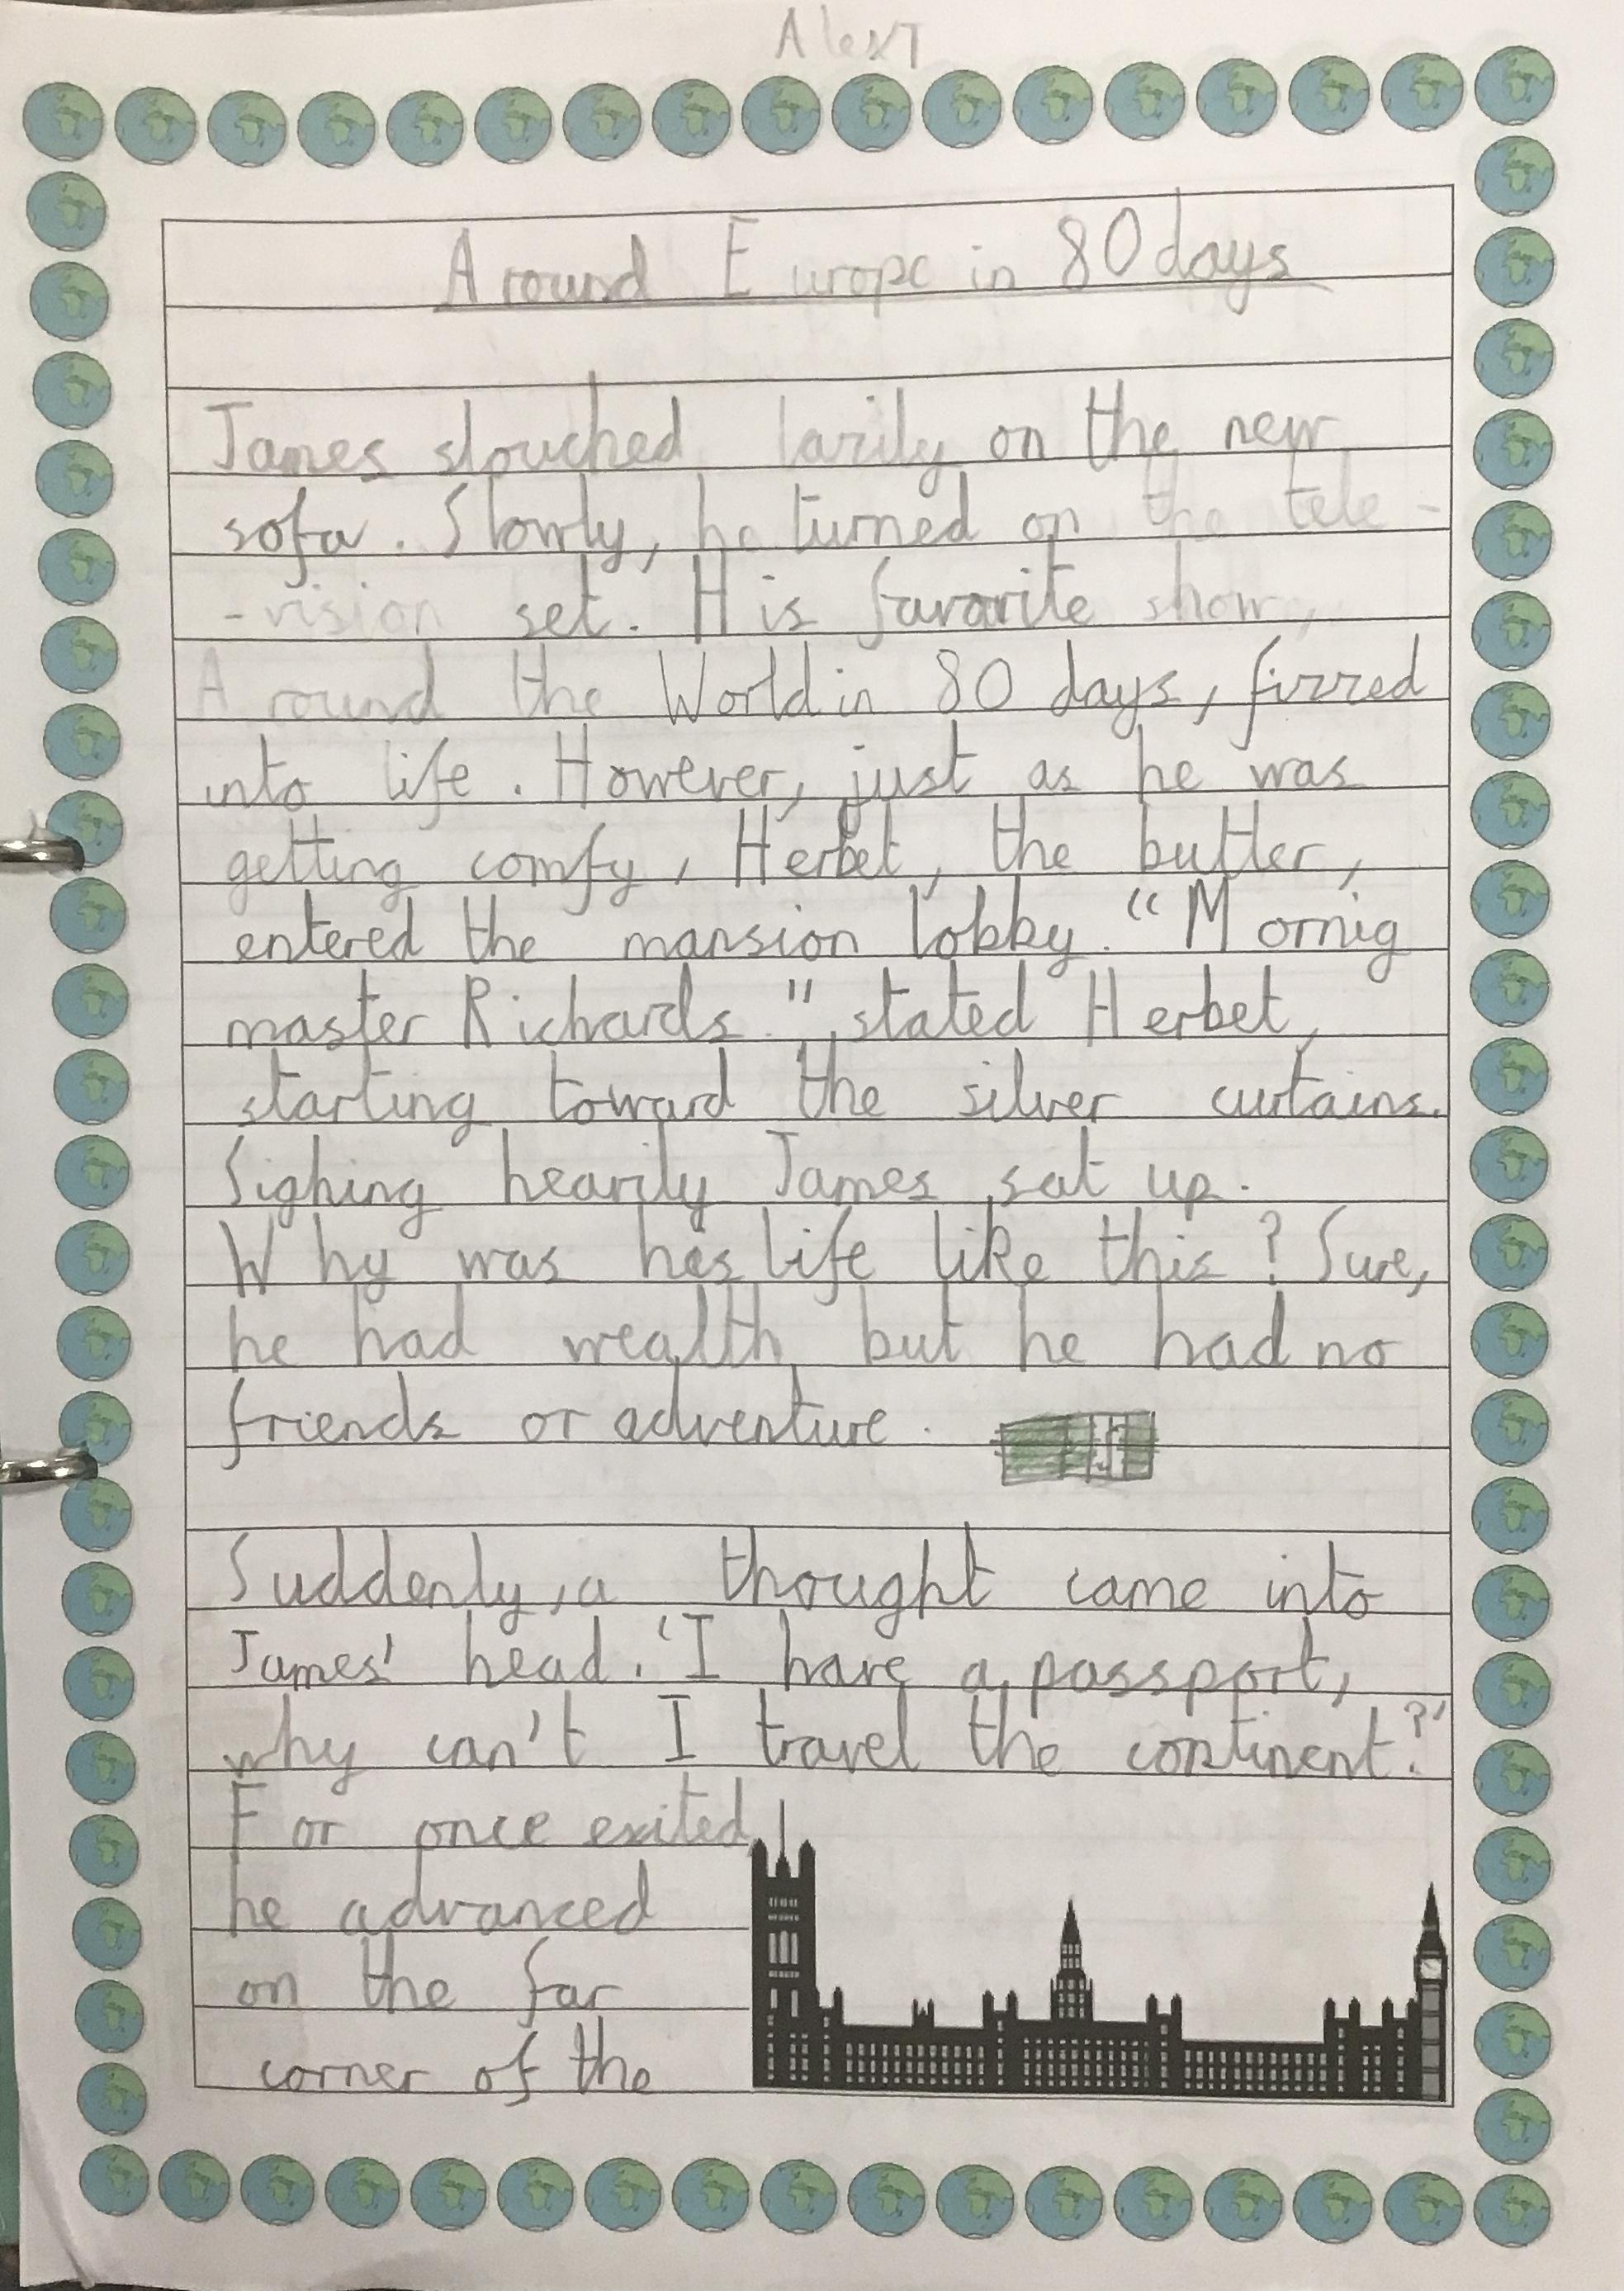 Alex T
Around Europe in 80 days
James slouched lazily on the new
sofa. Slowly, he turned on the tele-
-vision set. His favorite show,
Around the World in 80 days, fizzed
into life. However, just as he was
getting comfy, Herbet, the butler,
entered the mansion lobby. “Mornig
master Richards.” stated Herbet,
starting toward the silver curtains.
Sighing heavily James sat up.
Why was his life like this? Sure,
he had wealth but he had no
friends or adventure.
Suddenly, a thought came into
James' head. ‘I have a passport,
why can't I travel the continent?’
For once exited,
he advanced
on the far
corner of the